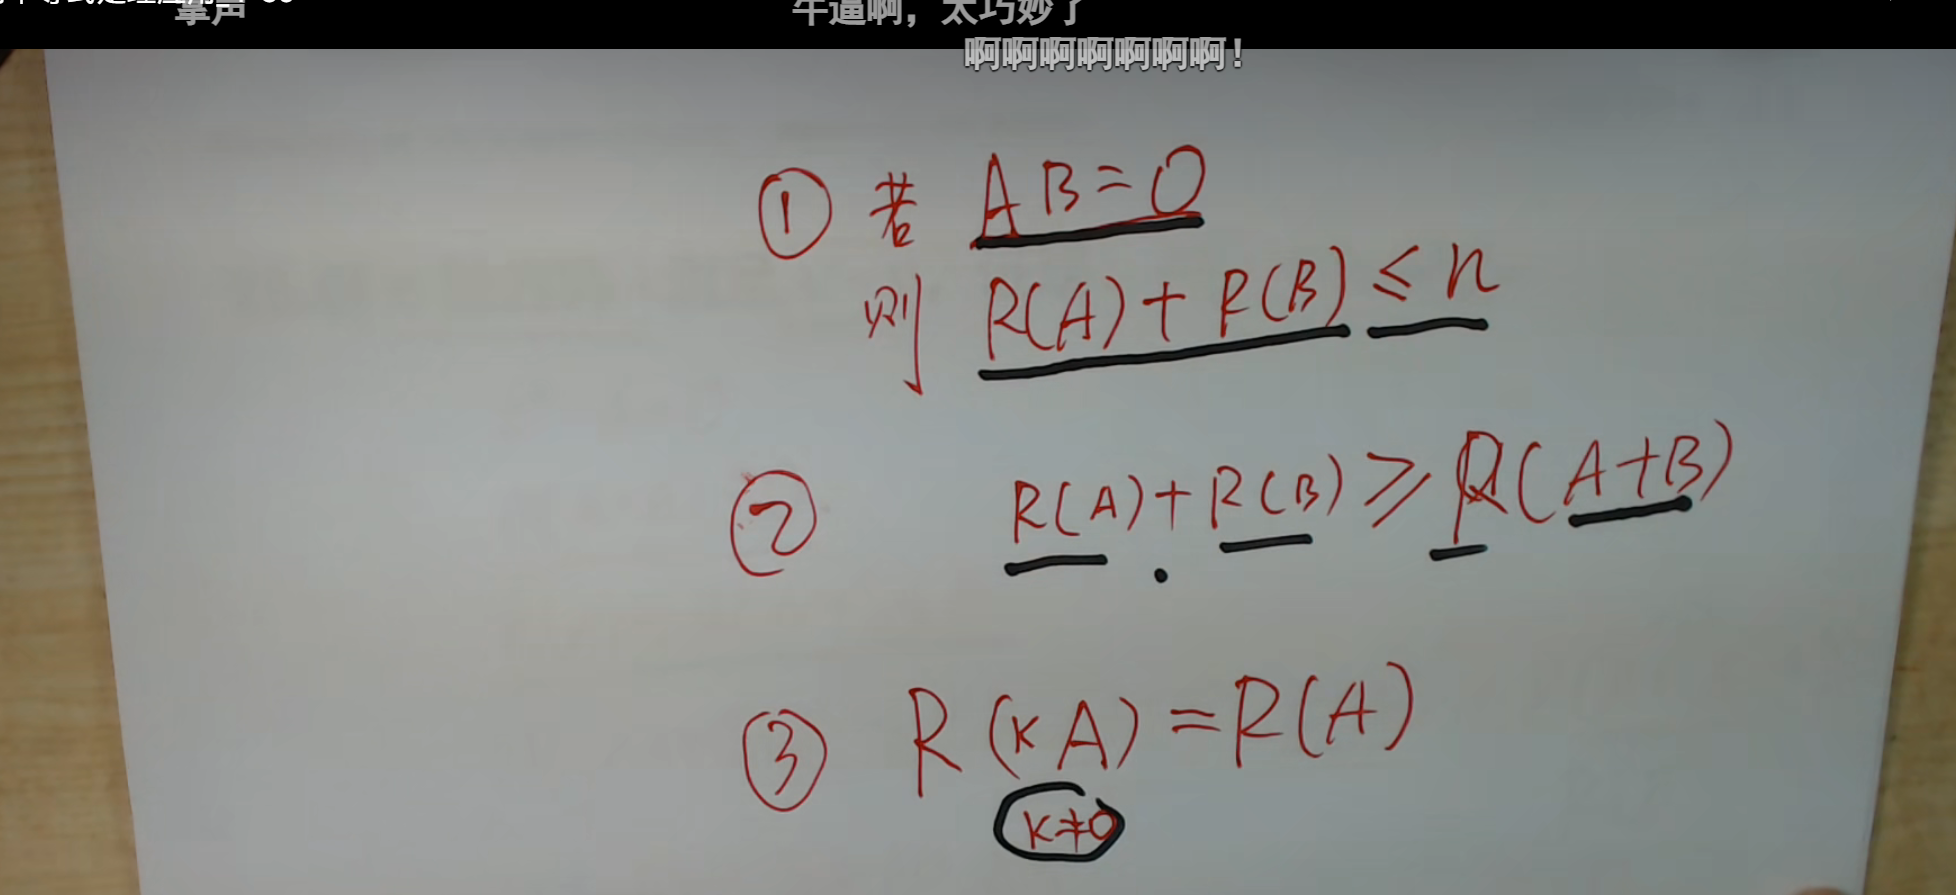 掌声
牛逼啊，太巧妙了
啊啊啊啊啊啊啊！
① 若 AB=0
则 R(A)+R(B)≤n
② R(A)+R(B)≥R(A+B)
③ R(kA)=R(A)
k≠0